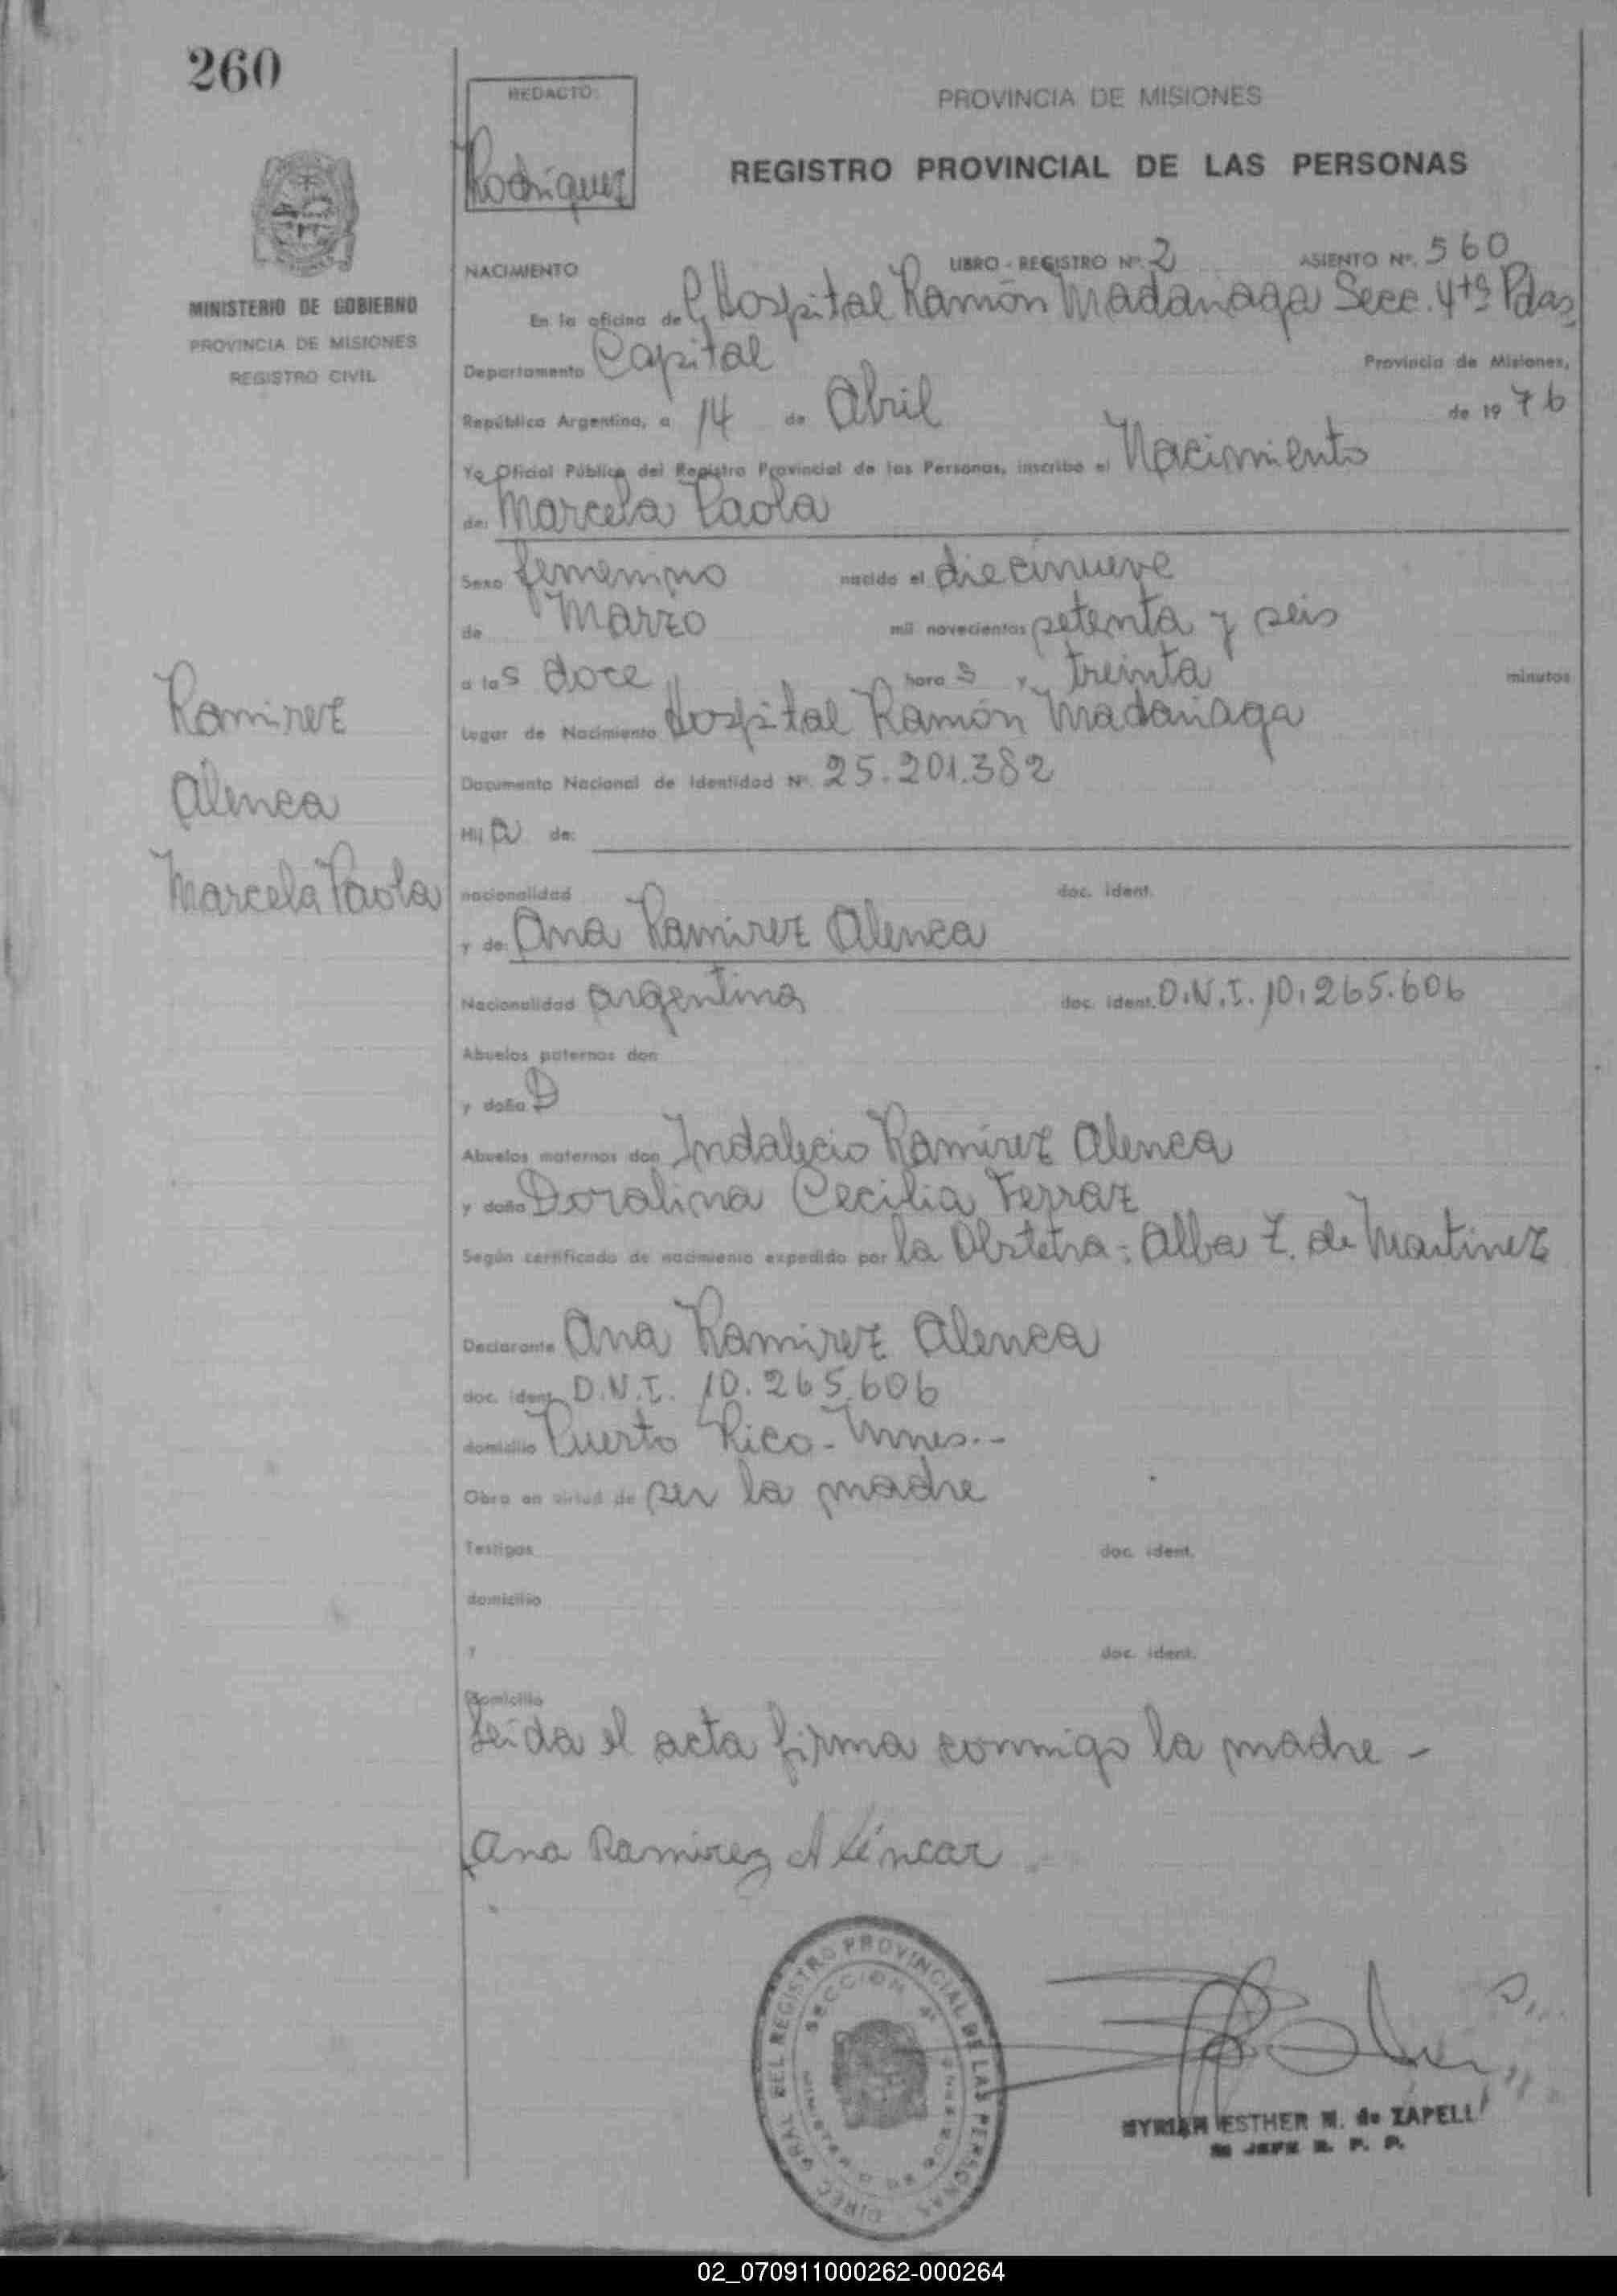 260
REDACTO:
Rodriguez
PROVINCIA DE MISIONES
REGISTRO PROVINCIAL DE LAS PERSONAS
MINISTERIO DE GOBIERNO
PROVINCIA DE MISIONES
REGISTRO CIVIL
NACIMIENTO LIBRO - REGISTRO Nº. 2 ASIENTO Nº. 560
En la oficina de Hospital Ramón Madariaga Secc. 4ta Pdas
Departamento Capital Provincia de Misiones,
República Argentina, a 14 de Abril de 1976
Yo Oficial Público del Registro Provincial de las Personas, inscribo el Nacimiento
de: Marcela Paola
Sexo femenino nacido el diecinueve
de Marzo mil novecientos setenta y seis
a las doce horas y treinta minutos
Lugar de Nacimiento Hospital Ramón Madariaga
Documento Nacional de Identidad Nº. 25.201.382
Hija de:
Ramirez
Alenca
Marcela Paola
nacionalidad doc. ident.
y de: Ana Ramirez Alenca
Nacionalidad argentina doc. ident. D.N.I. 10.265.606
Abuelos paternos don
y doña
Abuelos maternos don Indalecio Ramirez Alenca
y doña Doralina Cecilia Ferraz
Según certificado de nacimiento expedido por la Obstetra: Alba Z. de Martinez
Declarante Ana Ramirez Alenca
doc. ident. D.N.I. 10.265.606
domicilio Puerto Rico - Mnes.-
Obra en virtud de ser la madre
Testigos doc. ident.
domicilio
y doc. ident.
Domicilio
Leida el acta firma conmigo la madre -
Ana Ramirez Aléncar
DIREC. GRAL. DEL REGISTRO PROVINCIAL DE LAS PERSONAS
SECCION 4ª
MYRIAM ESTHER M. de ZAPELLI
JEFE R. P. P.
02_070911000262-000264